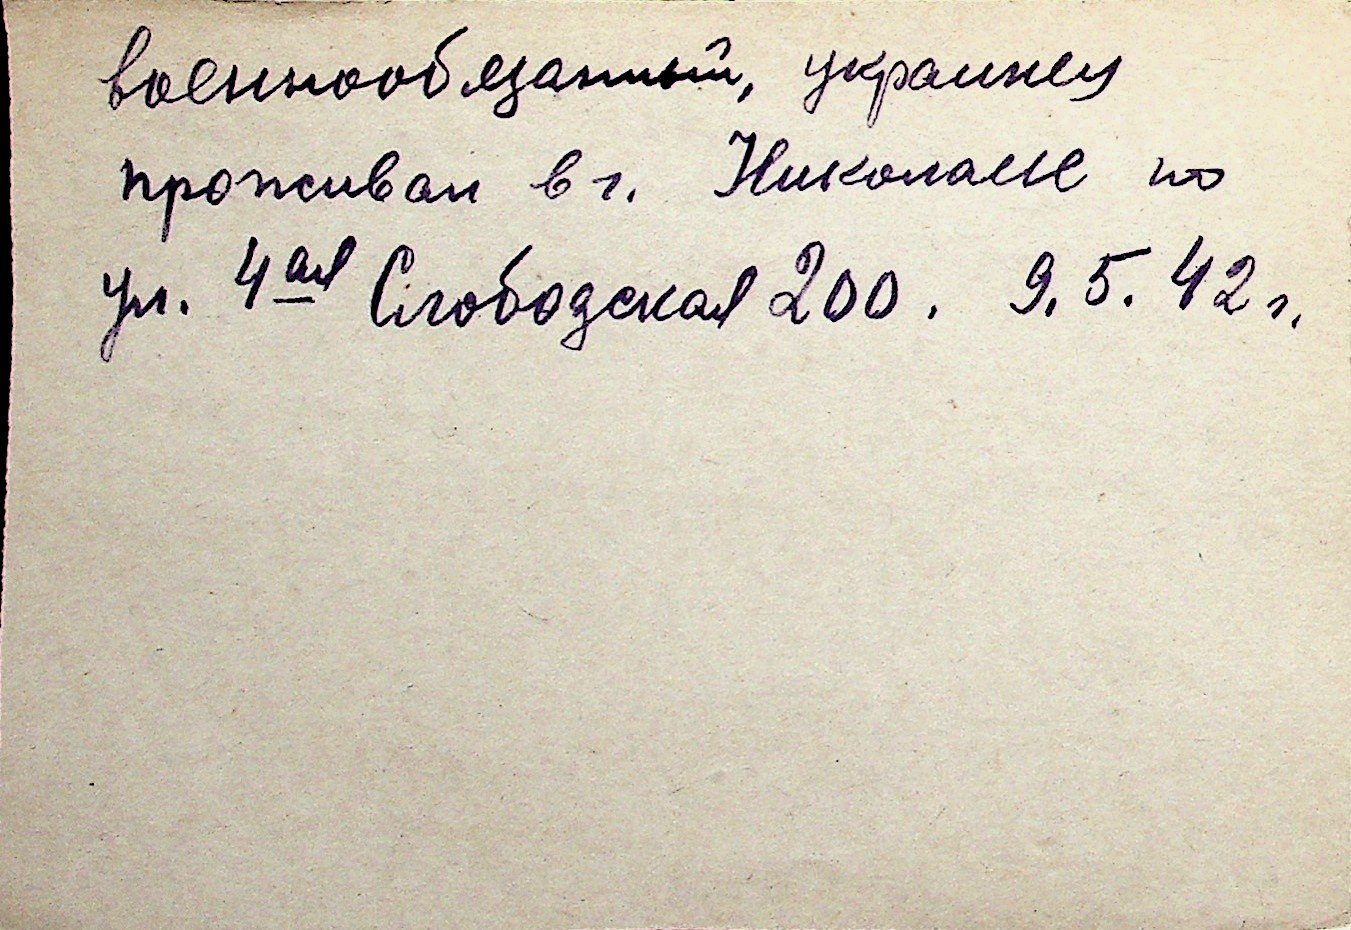 военнообязанный, украинец
проживал в г. Николаеве по
ул. 4ая Слободская 200. 9.5.42 г.